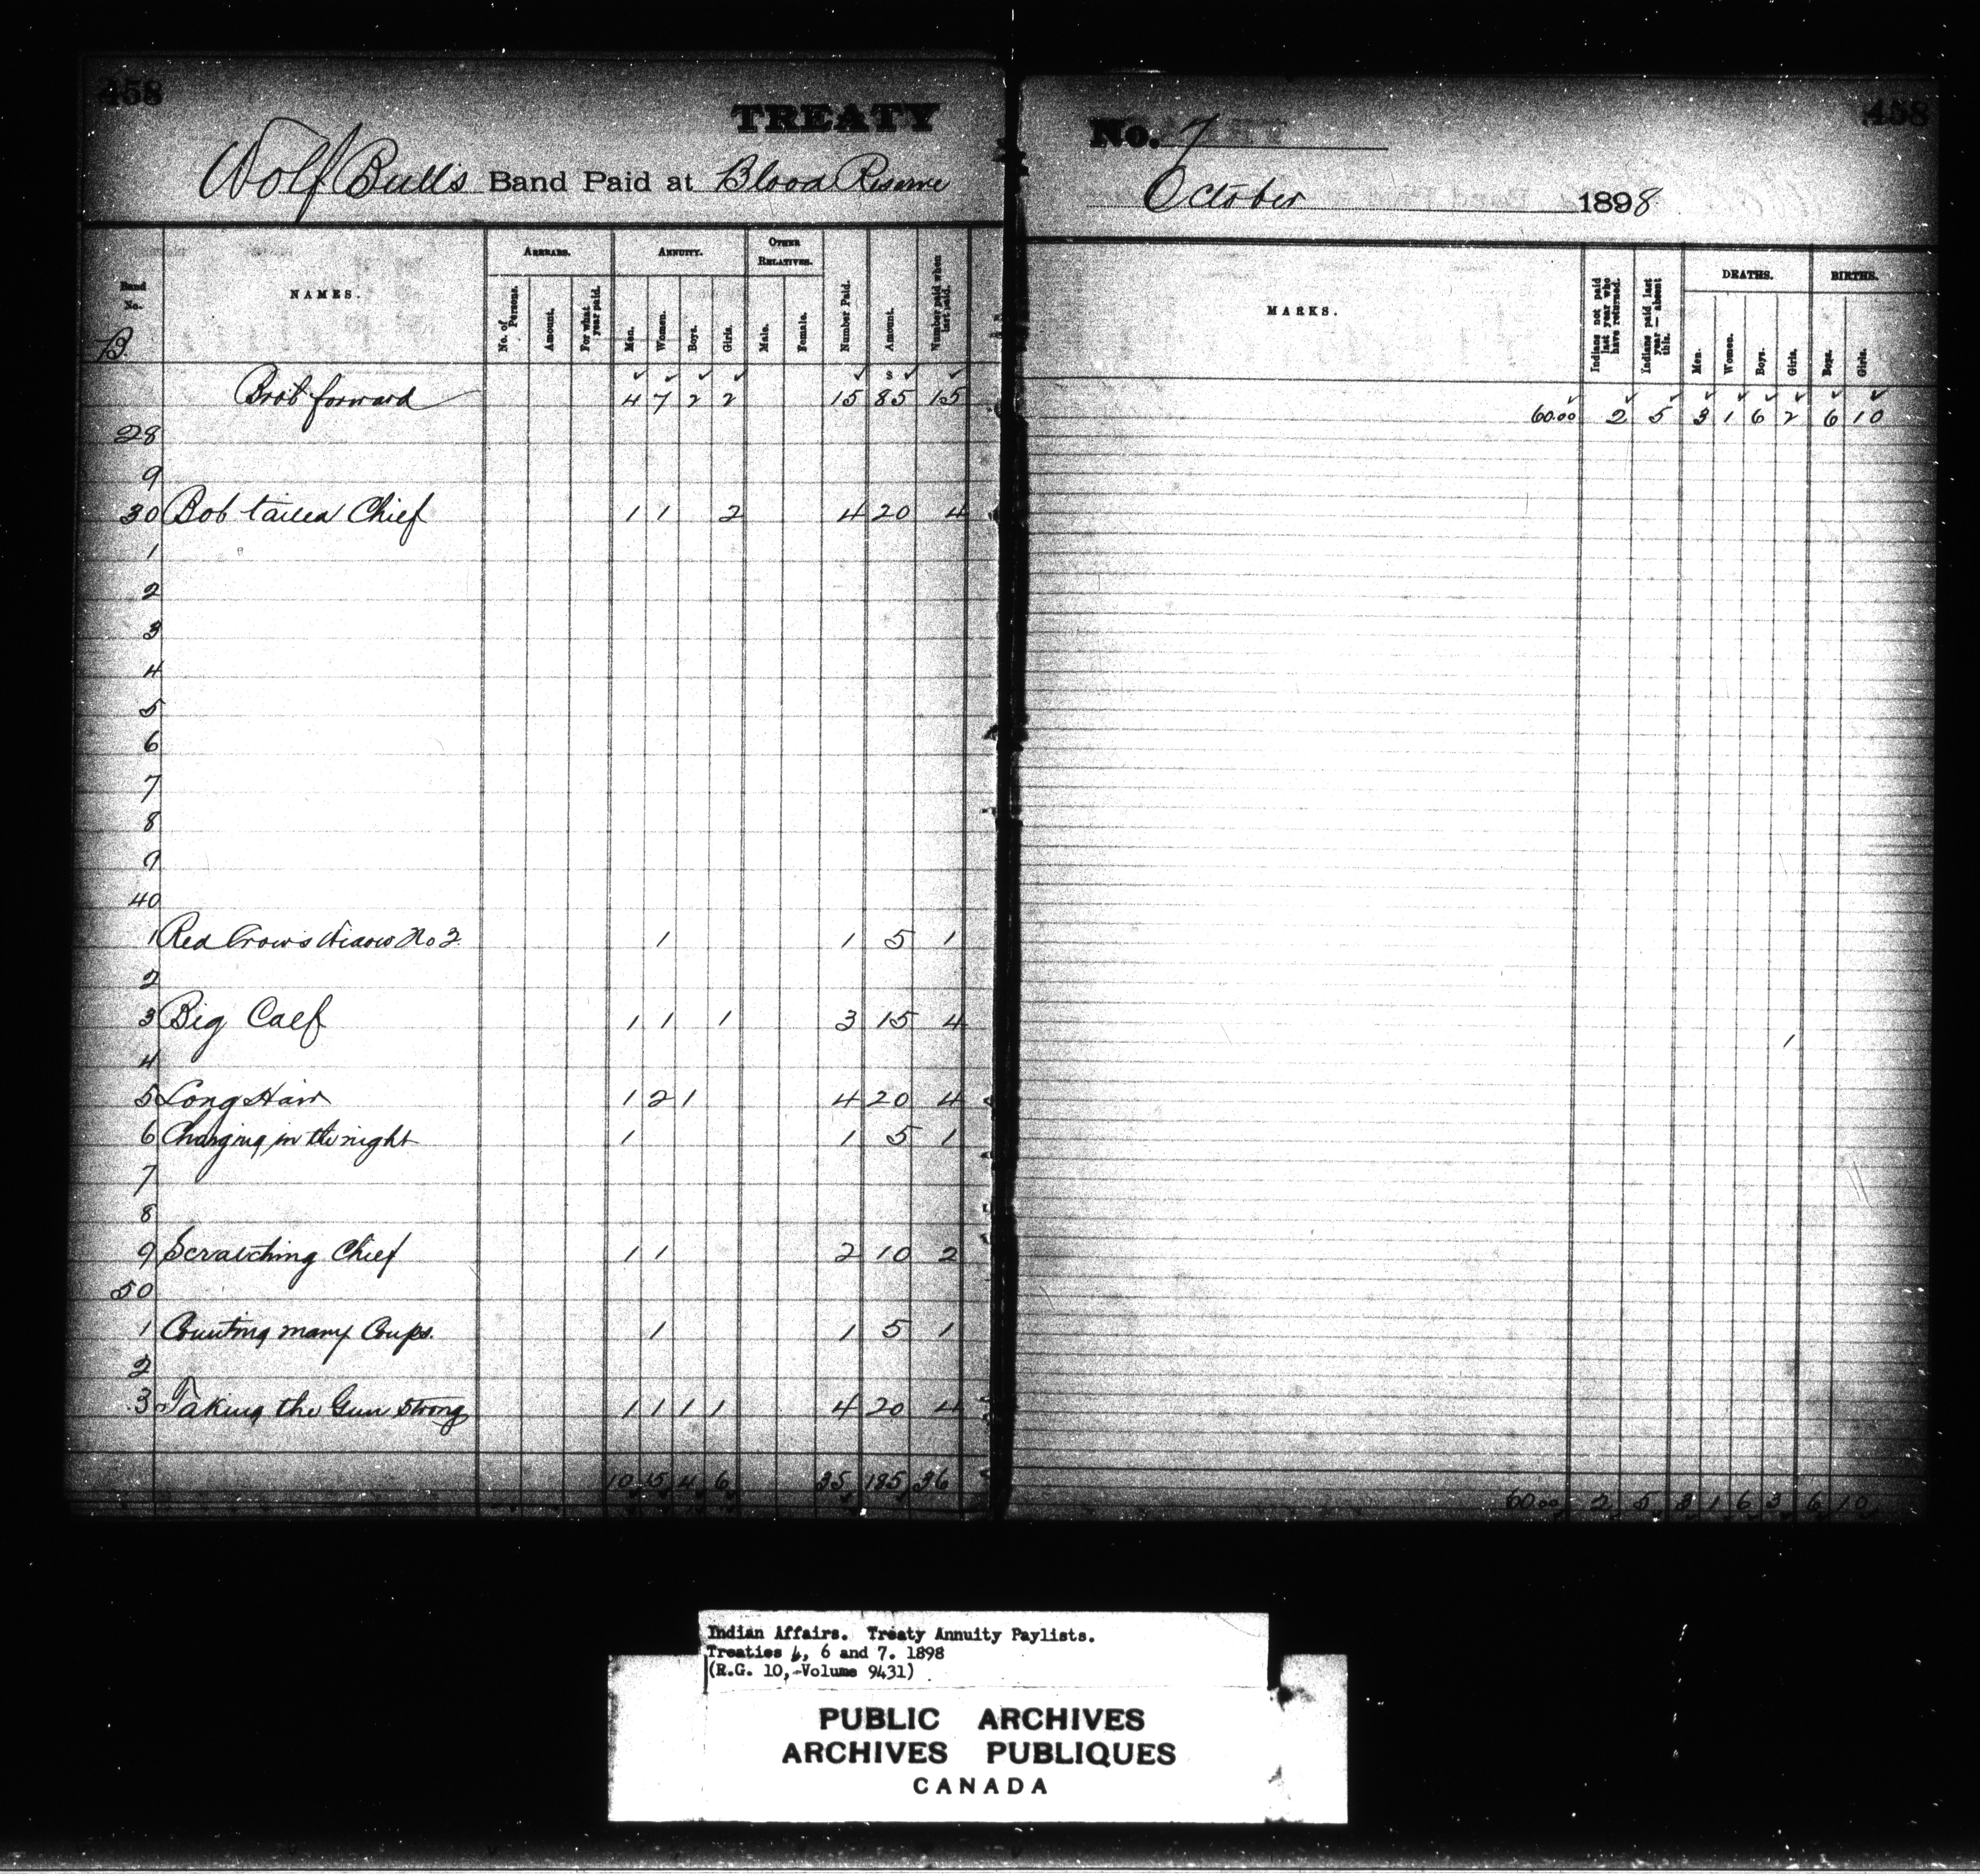 458
TREATY
Wolf Bull's Band Paid at Blood Reserve
Band No.
NAMES.
ARREARS.
ANNUITY.
OTHER RELATIVES.
No. of Persons.
Amount.
For what year paid.
Men.
Women.
Boys.
Girls.
Male.
Female.
Number Paid.
Amount.
Number paid when last paid.
B.
$
Brot forward 4 7 2 2 15 85 15
28
9
30 Bob tailed Chief 1 1 2 4 20 4
1
2
3
4
5
6
7
8
9
40
1 Red Crow's Widow No 2 1 1 5 1
2
3 Big Calf 1 1 1 3 15 4
4
5 Long Hair 1 2 1 4 20 4
6 Charging in the night 1 1 5 1
7
8
9 Scratching Chief 1 1 2 10 2
50
1 Counting many Coups. 1 1 5 1
2
3 Taking the Gun Strong 1 1 1 1 4 20 4
10 15 4 6 35 185 36
458
No. 7
October 1898
MARKS.
Indians not paid last year who have returned.
Indians paid last year — absent this.
DEATHS.
BIRTHS.
Men.
Women.
Boys.
Girls.
Boys.
Girls.
60.00 2 5 3 1 6 2 6 10
1
60.00 2 5 3 1 6 3 6 10
Indian Affairs. Treaty Annuity Paylists.
Treaties 4, 6 and 7. 1898
(R.G. 10, Volume 9431)
PUBLIC ARCHIVES
ARCHIVES PUBLIQUES
CANADA